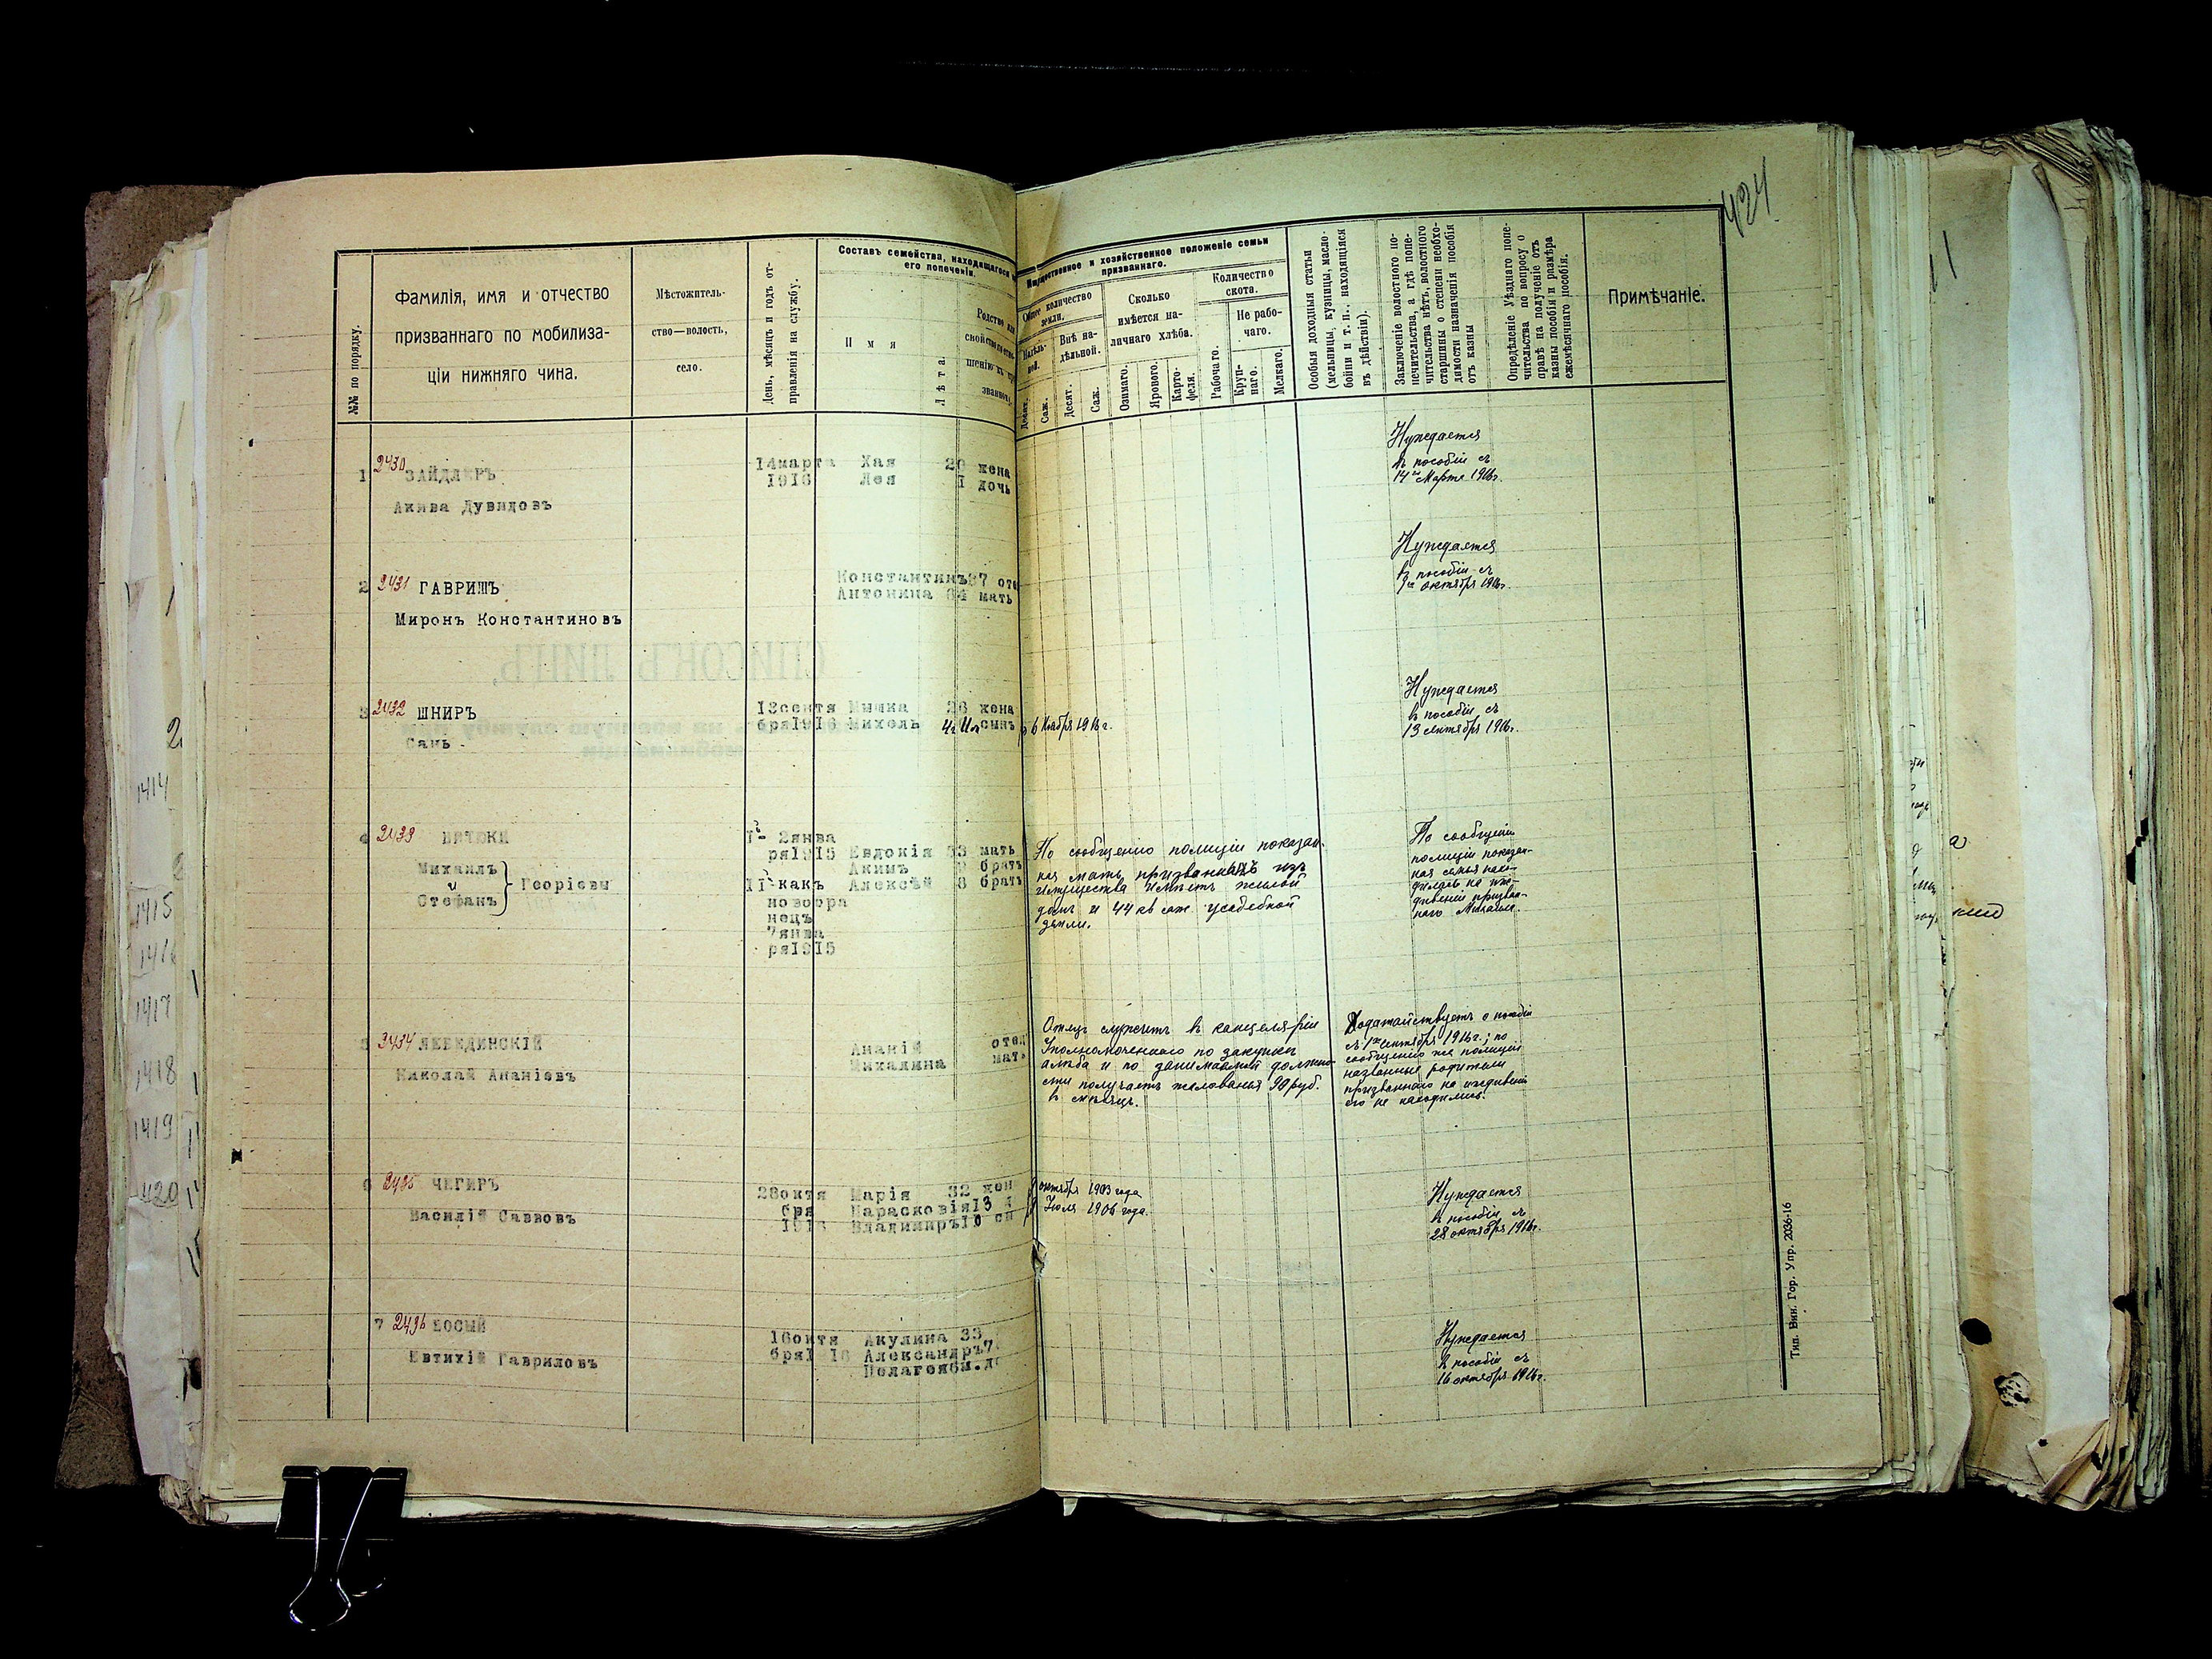 424
№№ по порядку.
Фамилія, имя и отчество
призваннаго по мобилиза-
ціи нижняго чина.
Мѣстожитель-
ство—волость,
село.
День, мѣсяцъ и годъ от-
правленія на службу.
Составъ семейства, находящагося
его попеченіи.
Имя
Лѣта.
Родство или
свойство
шенію къ
званному.
Имущественное и хозяйственное положеніе семьи
призваннаго.
Общее количество
земли.
Надѣль-
ной.
Внѣ на-
дѣльной.
Десят.
Саж.
Десят.
Саж.
Сколько
имѣется на-
личнаго хлѣба.
Озимаго.
Ярового.
Карто-
феля.
Количество
скота.
Рабочаго.
Не рабо-
чаго.
Круп-
наго.
Мелкаго.
Особыя доходныя статьи
(мельницы, кузницы, масло-
бойни и т. п., находящіяся
въ дѣйствіи).
Заключеніе волостного по-
печительства, а гдѣ попе-
чительства нѣтъ, волостного
старшины о степени необхо-
димости назначенія пособія
отъ казны
Опредѣленіе Уѣзднаго попе-
чительства по вопросу о
правѣ на полученіе отъ
казны пособія и размѣра
ежемѣсячнаго пособія.
Примѣчаніе.
1 2430 ЗАЙДЛЕРЪ
Акива Дувидовъ
14марта
1916
Хая 20 жена
Лея 1 дочь
Нуждается
въ пособіи съ
14го Марта 1916г.
2 2431 ГАВРИШЪ
Миронъ Константиновъ
Константинъ 67
Антонина 64 мать
Нуждается
въ пособіи съ
октября 1916г.
3 2432 ШНИРЪ
Сань
13сентя
бря1916
26 жена
Михель сынъ
6 Ноября 1916г.
Нуждается
въ пособіи съ
13 сентября 1916г.
4 2433
Михаилъ
и
Стефанъ
Георіевы
I- 2янва
ря1915
II-какъ
новобра
нецъ
7янва
ря1915
Евдокія 53 мать
Акимъ братъ
Алексѣй 8 братъ
По сообщенію полиціи показан-
ная мать призванныхъ изъ
имущества имѣетъ жилой
домъ и 44 кв саж. усадебной
земли.
По сообщенію
полиціи показан-
ная семья нахо-
дилась на иж-
дивеніи призван-
наго Михаила.
5 2434 ЛЕБЕДИНСКІЙ
Николай Ананіевъ
Ананій отец
Михалина мать
Отецъ служитъ въ канцеляріи
Уполномоченнаго по закупкѣ
хлѣба и по занимаемой должно-
сти получаетъ жалованья 90 руб.
въ мѣсяцъ.
Ходатайствуетъ о пособіи
съ 1го Сентября 1916г.; по
сообщенію же полиціи
названные родители
призваннаго на иждивеніи
его не находились.
6 2435 ЧЕГИРЪ
Василій Саввовъ
28октя
бря
1916
Марія 32 жен
Парасковія13
Владимиръ10
октября 1903 года
Іюля 1906 года.
Нуждается
въ пособіи съ
28 октября 1916г.
7 2436 БОСЫЙ
Евтихій Гавриловъ
16октя
бря1 16
Акулина 33
Александръ7
Нуждается
въ пособіи съ
16 октября 1916г.
Тип. Вин. Гор. Упр. 2036-16
1414
1415
1416
1417
1418
1419
420